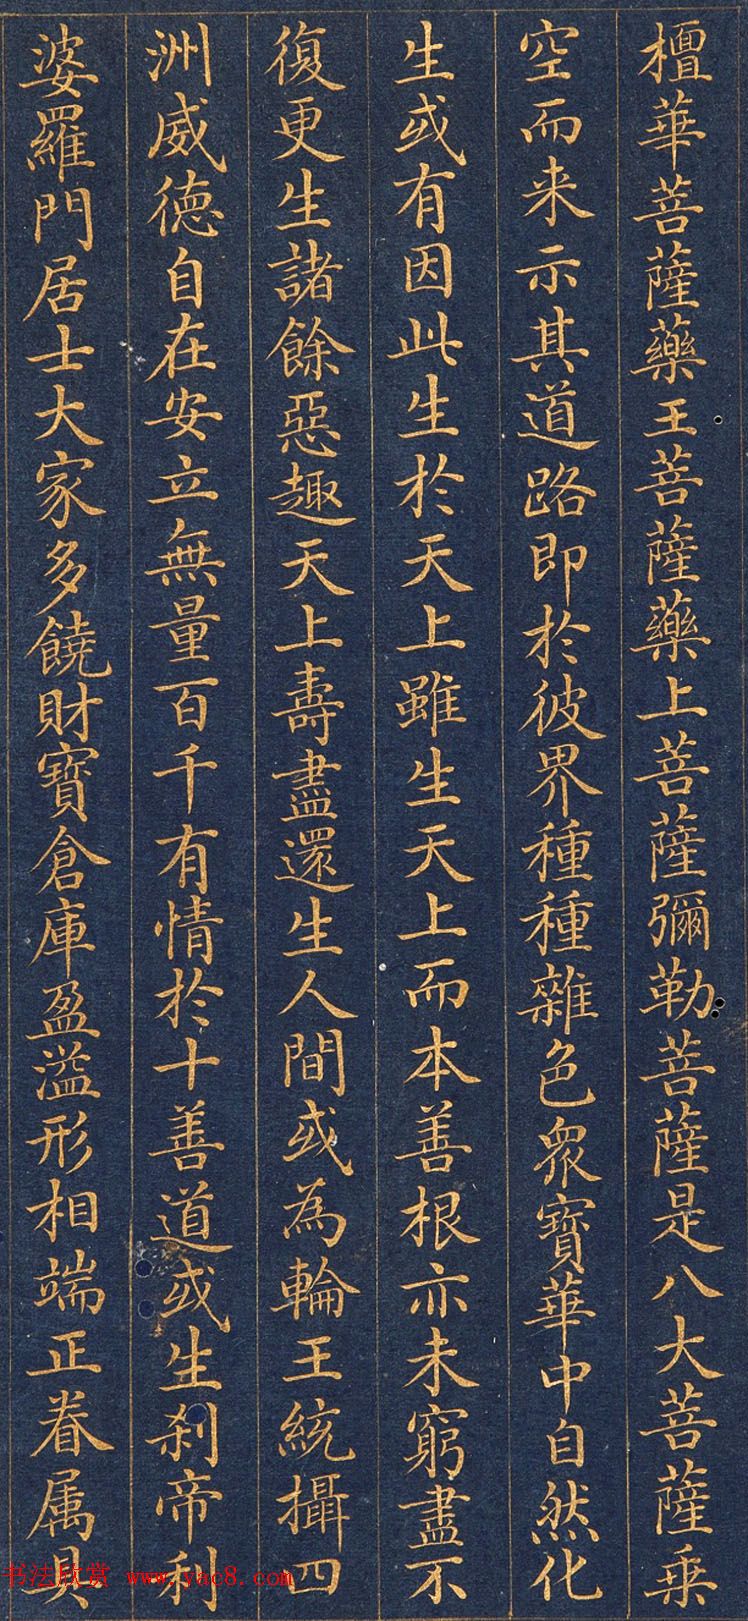 檀華菩薩藥王菩薩藥上菩薩彌勒菩薩是八大菩薩乗
空而来示其道路即於彼界種種雜色衆寶華中自然化
生或有因此生於天上雖生天上而本善根亦未窮盡不
復更生諸餘惡趣天上壽盡還生人間或為輪王統攝四
洲威德自在安立無量百千有情於十善道或生刹帝利
婆羅門居士大家多饒財寶倉庫盈溢形相端正眷属具
书法欣赏 www.yac8.com